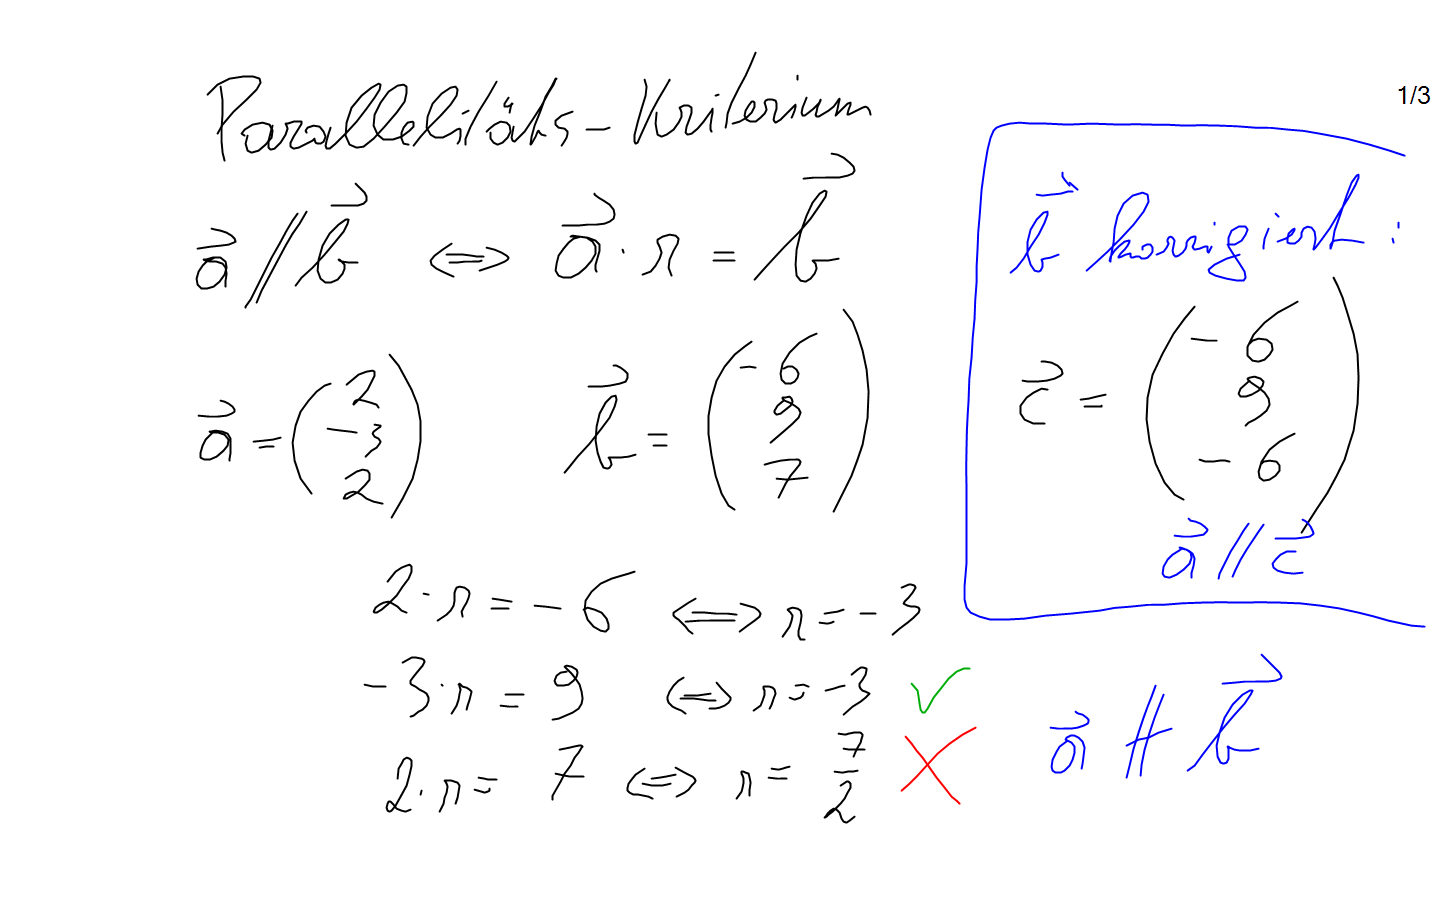 1/3
Parallelitäts-Kriterium
a⃗ // b⃗ ⇔ a⃗ · r = b⃗
a⃗ = (2 -3 2) b⃗ = (-6 9 7)
2 · r = -6 ⇔ r = -3
-3 · r = 9 ⇔ r = -3 ✓
2 · r = 7 ⇔ r = 7/2 ✗
b⃗ korrigiert:
c⃗ = (-6 9 -6)
a⃗ // c⃗
a⃗ ∦ b⃗